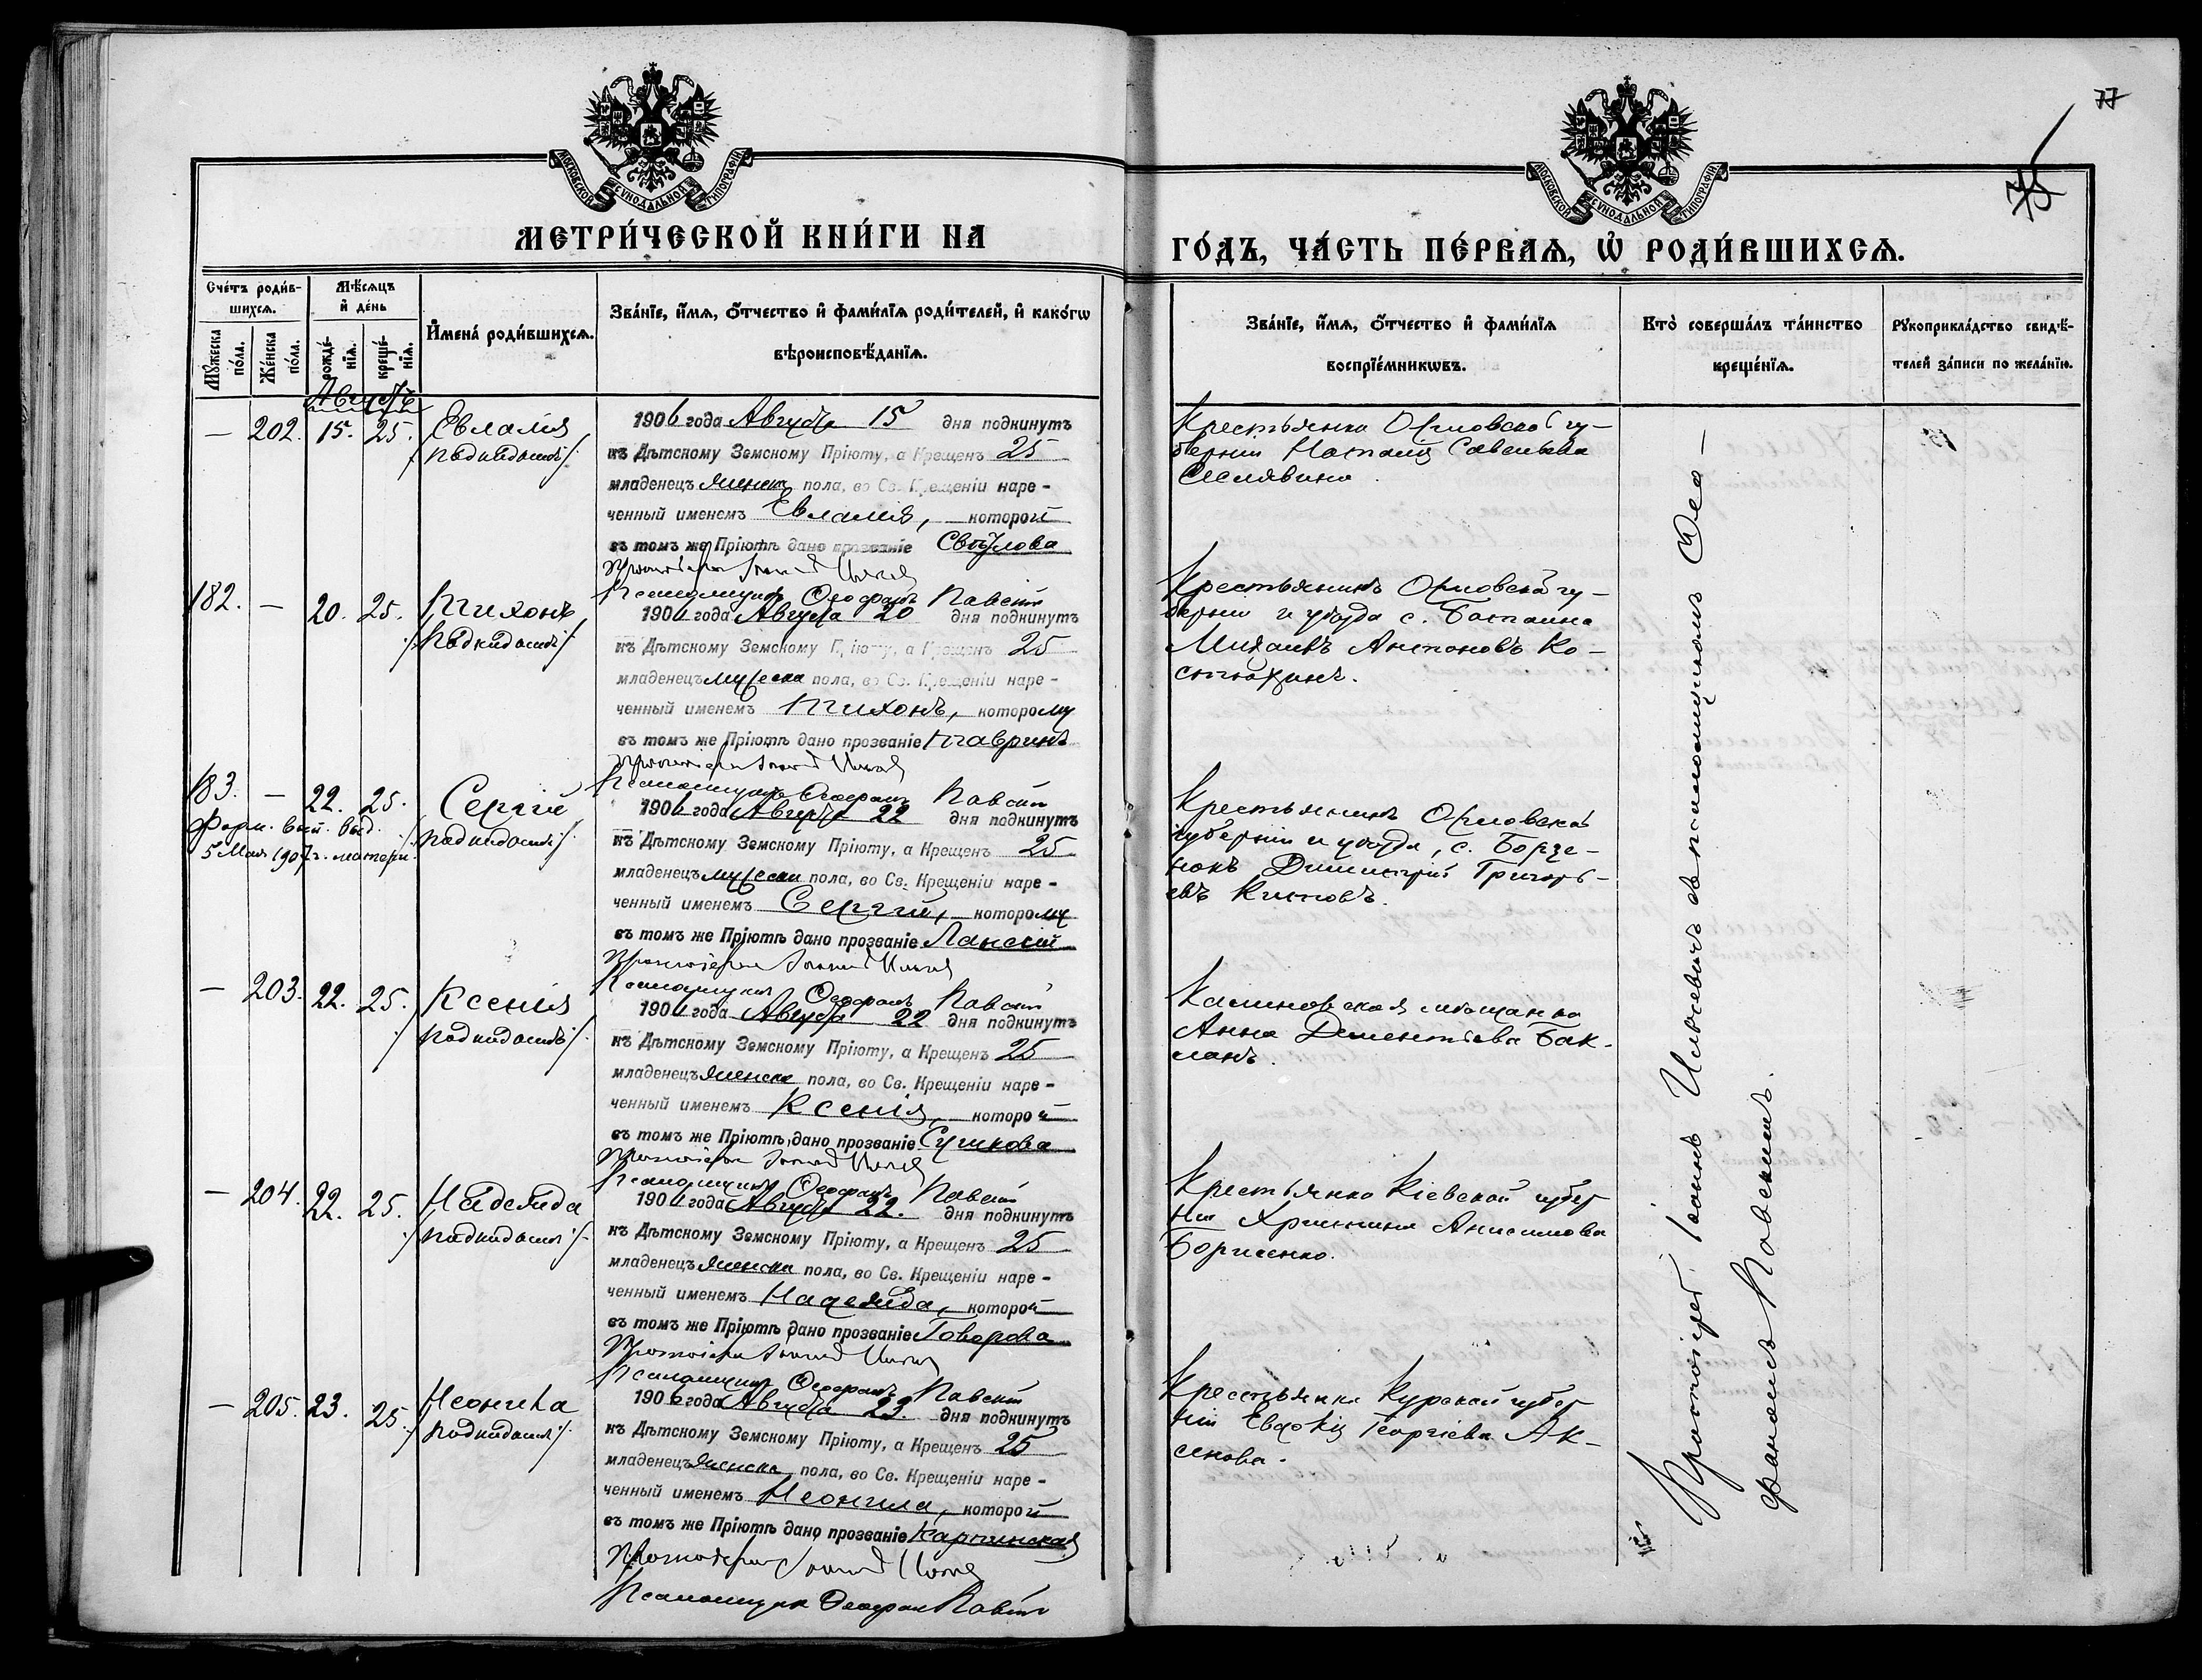 77
75
МОСКОВСКОЙ СѴНОДАЛЬНОЙ ТИПОГРАФІИ
МОСКОВСКОЙ СѴНОДАЛЬНОЙ ТИПОГРАФІИ
МЕТРИ́ЧЕСКОЙ КНИ́ГИ НА
ГО́ДЪ, ЧА́СТЬ ПЕ́РВАѦ, Ѡ҆ РОДИ́ВШИХСѦ.
Сче́тъ роди́в-
шихсѧ.
Мꙋ́жеска по́ла.
Же́нска по́ла.
Мѣ́сѧцъ
и҆ де́нь
рожде́-
нїѧ.
креще́-
нїѧ.
И҆мена̀ роди́вшихсѧ.
Зва́нїе, и҆́мѧ, ѻ҆́тчество и҆ фами́лїѧ роди́телей, и҆ како́гѡ
вѣроисповѣ́данїѧ.
Зва́нїе, и҆́мѧ, ѻ҆́тчество и҆ фами́лїѧ
воспрїе́мникѡвъ.
Кто̀ соверша́лъ та́инство
креще́нїѧ.
Рꙋкоприкла́дство свидѣ́-
телей за́писи по жела́нїю.
Августъ
— 202. 15. 25. Евлалія
/: подкидышъ :/
1906 года Августа 15 дня подкинутъ
къ Дѣтскому Земскому Пріюту, а Крещенъ 25
младенецъ женск. пола, во Св. Крещеніи наре-
ченный именемъ Евлалія, которой
въ томъ же Пріютѣ дано прозваніе
Протоіерей Іоаннъ
Псаломщикъ Ѳеофанъ Павскій
Крестьянка Орловской гу-
берніи Наталія Савельева
182. — 20. 25. Тихонъ
/: подкидышъ :/
1906 года Августа 20 дня подкинутъ
къ Дѣтскому Земскому Пріюту, а Крещенъ 25
младенецъ мужеска пола, во Св. Крещеніи наре-
ченный именемъ Тихонъ, которому
въ томъ же Пріютѣ дано прозваніе Тавринъ
Протоіерей Іоаннъ
Псаломщикъ Ѳеофанъ Павскій
Крестьянинъ Орловской гу-
берніи и уѣзда с.
Михаилъ Антоновъ Ко-
стюхинъ.
183. — 22. 25. Сергій
/: подкидышъ :/
5 Мая 1907 г. матери.
1906 года Августа 22 дня подкинутъ
къ Дѣтскому Земскому Пріюту, а Крещенъ 25
младенецъ мужеска пола, во Св. Крещеніи наре-
ченный именемъ Сергій, которому
въ томъ же Пріютѣ дано прозваніе Ланскій
Протоіерей Іоаннъ
Псаломщикъ Ѳеофанъ Павскій
Крестьянинъ Орловской
губерніи и уѣзда, с.
Димитрій Григорь-
евъ
— 203. 22. 25. Ксенія
/: подкидышъ :/
1906 года Августа 22 дня подкинутъ
къ Дѣтскому Земскому Пріюту, а Крещенъ 25
младенецъ женска пола, во Св. Крещеніи наре-
ченный именемъ Ксенія, которой
въ томъ же Пріютѣ дано прозваніе Сушкова
Протоіерей Іоаннъ
Псаломщикъ Ѳеофанъ Павскій
мѣщанка
Анна Дементіева Бак-
ланъ.
— 204. 22. 25. Надежда
/: подкидышъ :/
1906 года Августа 22. дня подкинутъ
къ Дѣтскому Земскому Пріюту, а Крещенъ 25
младенецъ женска пола, во Св. Крещеніи наре-
ченный именемъ Надежда, которой
въ томъ же Пріютѣ дано прозваніе Говорова
Протоіерей Іоаннъ
Псаломщикъ Ѳеофанъ Павскій
Крестьянка Кіевской губер
ніи Христина Анисимова
Борисенко.
— 205. 23. 25. Неонила
/: подкидышъ :/
1906 года Августа 23. дня подкинутъ
къ Дѣтскому Земскому Пріюту, а Крещенъ 25
младенецъ женска пола, во Св. Крещеніи наре-
ченный именемъ Неонила, которой
въ томъ же Пріютѣ дано прозваніе Карпинская
Протоіерей Іоаннъ
Псаломщикъ Ѳеофанъ Павскій
Крестьянка Курской губер
ніи Евдокія Георгіева Ак-
сенова.
Протоіерей Іоаннъ съ псаломщикомъ Ѳео-
фаномъ Павскимъ.